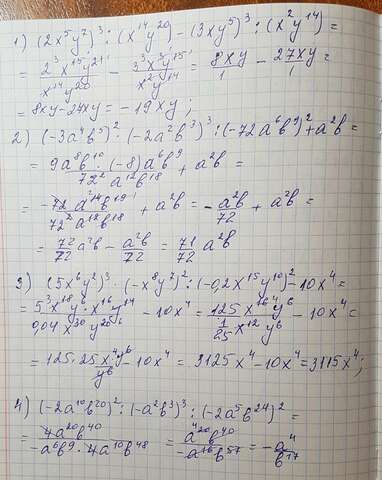 1) (2x⁵y²)³ : (x¹⁴y²⁰) - (3xy⁵)³ : (x²y¹⁴) =
= 2³x¹⁵y²¹/x¹⁴y²⁰ - 3³x³y¹⁵/x²y¹⁴ = 8xy/1 - 27xy/1 =
= 8xy - 27xy = -19xy;
2) (-3a⁴b⁵)² · (-2a²b³)³ : (-72a⁶b⁹)² + a²b =
= 9a⁸b¹⁰ · (-8)a⁶b⁹/72²a¹²b¹⁸ + a²b =
= -72a¹⁴b¹⁹/72²a¹²b¹⁸ + a²b = -a²b/72 + a²b =
= 72/72 a²b - a²b/72 = 71/72 a²b
3) (5x⁶y²)³ · (-x⁸y⁷)² : (-0,2x¹⁵y¹⁰)² - 10x⁴ =
= 5³x¹⁸y⁶ · x¹⁶y¹⁴/0,04x³⁰y²⁰ - 10x⁴ = 125x¹⁶y⁶/1/25 x¹²y⁶ - 10x⁴ =
= 125·25x⁴y⁶/y⁶ - 10x⁴ = 3125x⁴ - 10x⁴ = 3115x⁴;
4) (-2a¹⁰b²⁰)² : (-a²b³)³ : (-2a⁵b²⁴)² =
= 4a²⁰b⁴⁰/-a⁶b⁹ · 4a¹⁰b⁴⁸ = a²⁰b⁴⁰/-a¹⁶b⁵⁷ = -a⁴/b¹⁷